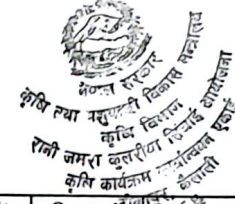 नेपाल सरकार
कृषि तथा पशुपन्छी विकास मन्त्रालय
कृषि विभाग
रानी जमरा कुलरीया सिंचाई आयोजना
कृषि कार्यक्रम कार्यान्वयन एकाई
कैलाली